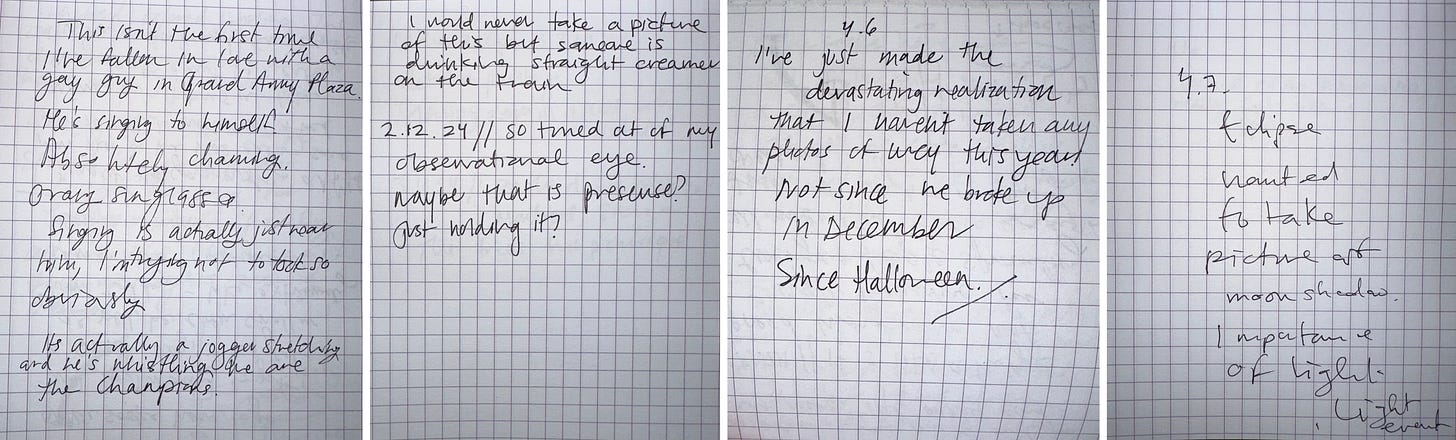 This isn't the first time
I've fallen in love with a
gay guy in Grand Army Plaza.
He's singing to himself
Absolutely charming.
Orang sunglasses.
Singing is actually just near
him, I'm trying not to look so
obviously
Its actually a jogger stretching
and he's whistling We are
the Champions.
I would never take a picture
of this but someone is
drinking straight creamer
on the train
2.12.24// so tired at of my
observational eye.
maybe that is presense?
Just holding it?
4.6
I've just made the
devastating realization
that I haven't taken any
photos of Lucy this year!
Not since we broke up
in December
Since Halloween.
4.7.
Eclipse
wanted
to take
picture of
moon shadow.
Importance
of light.
Light
event